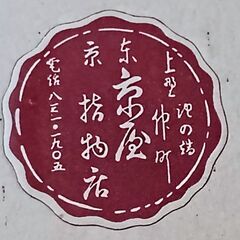 上野
池の端
仲町
東京
京屋
指物店
電話 八三一〇一九〇五